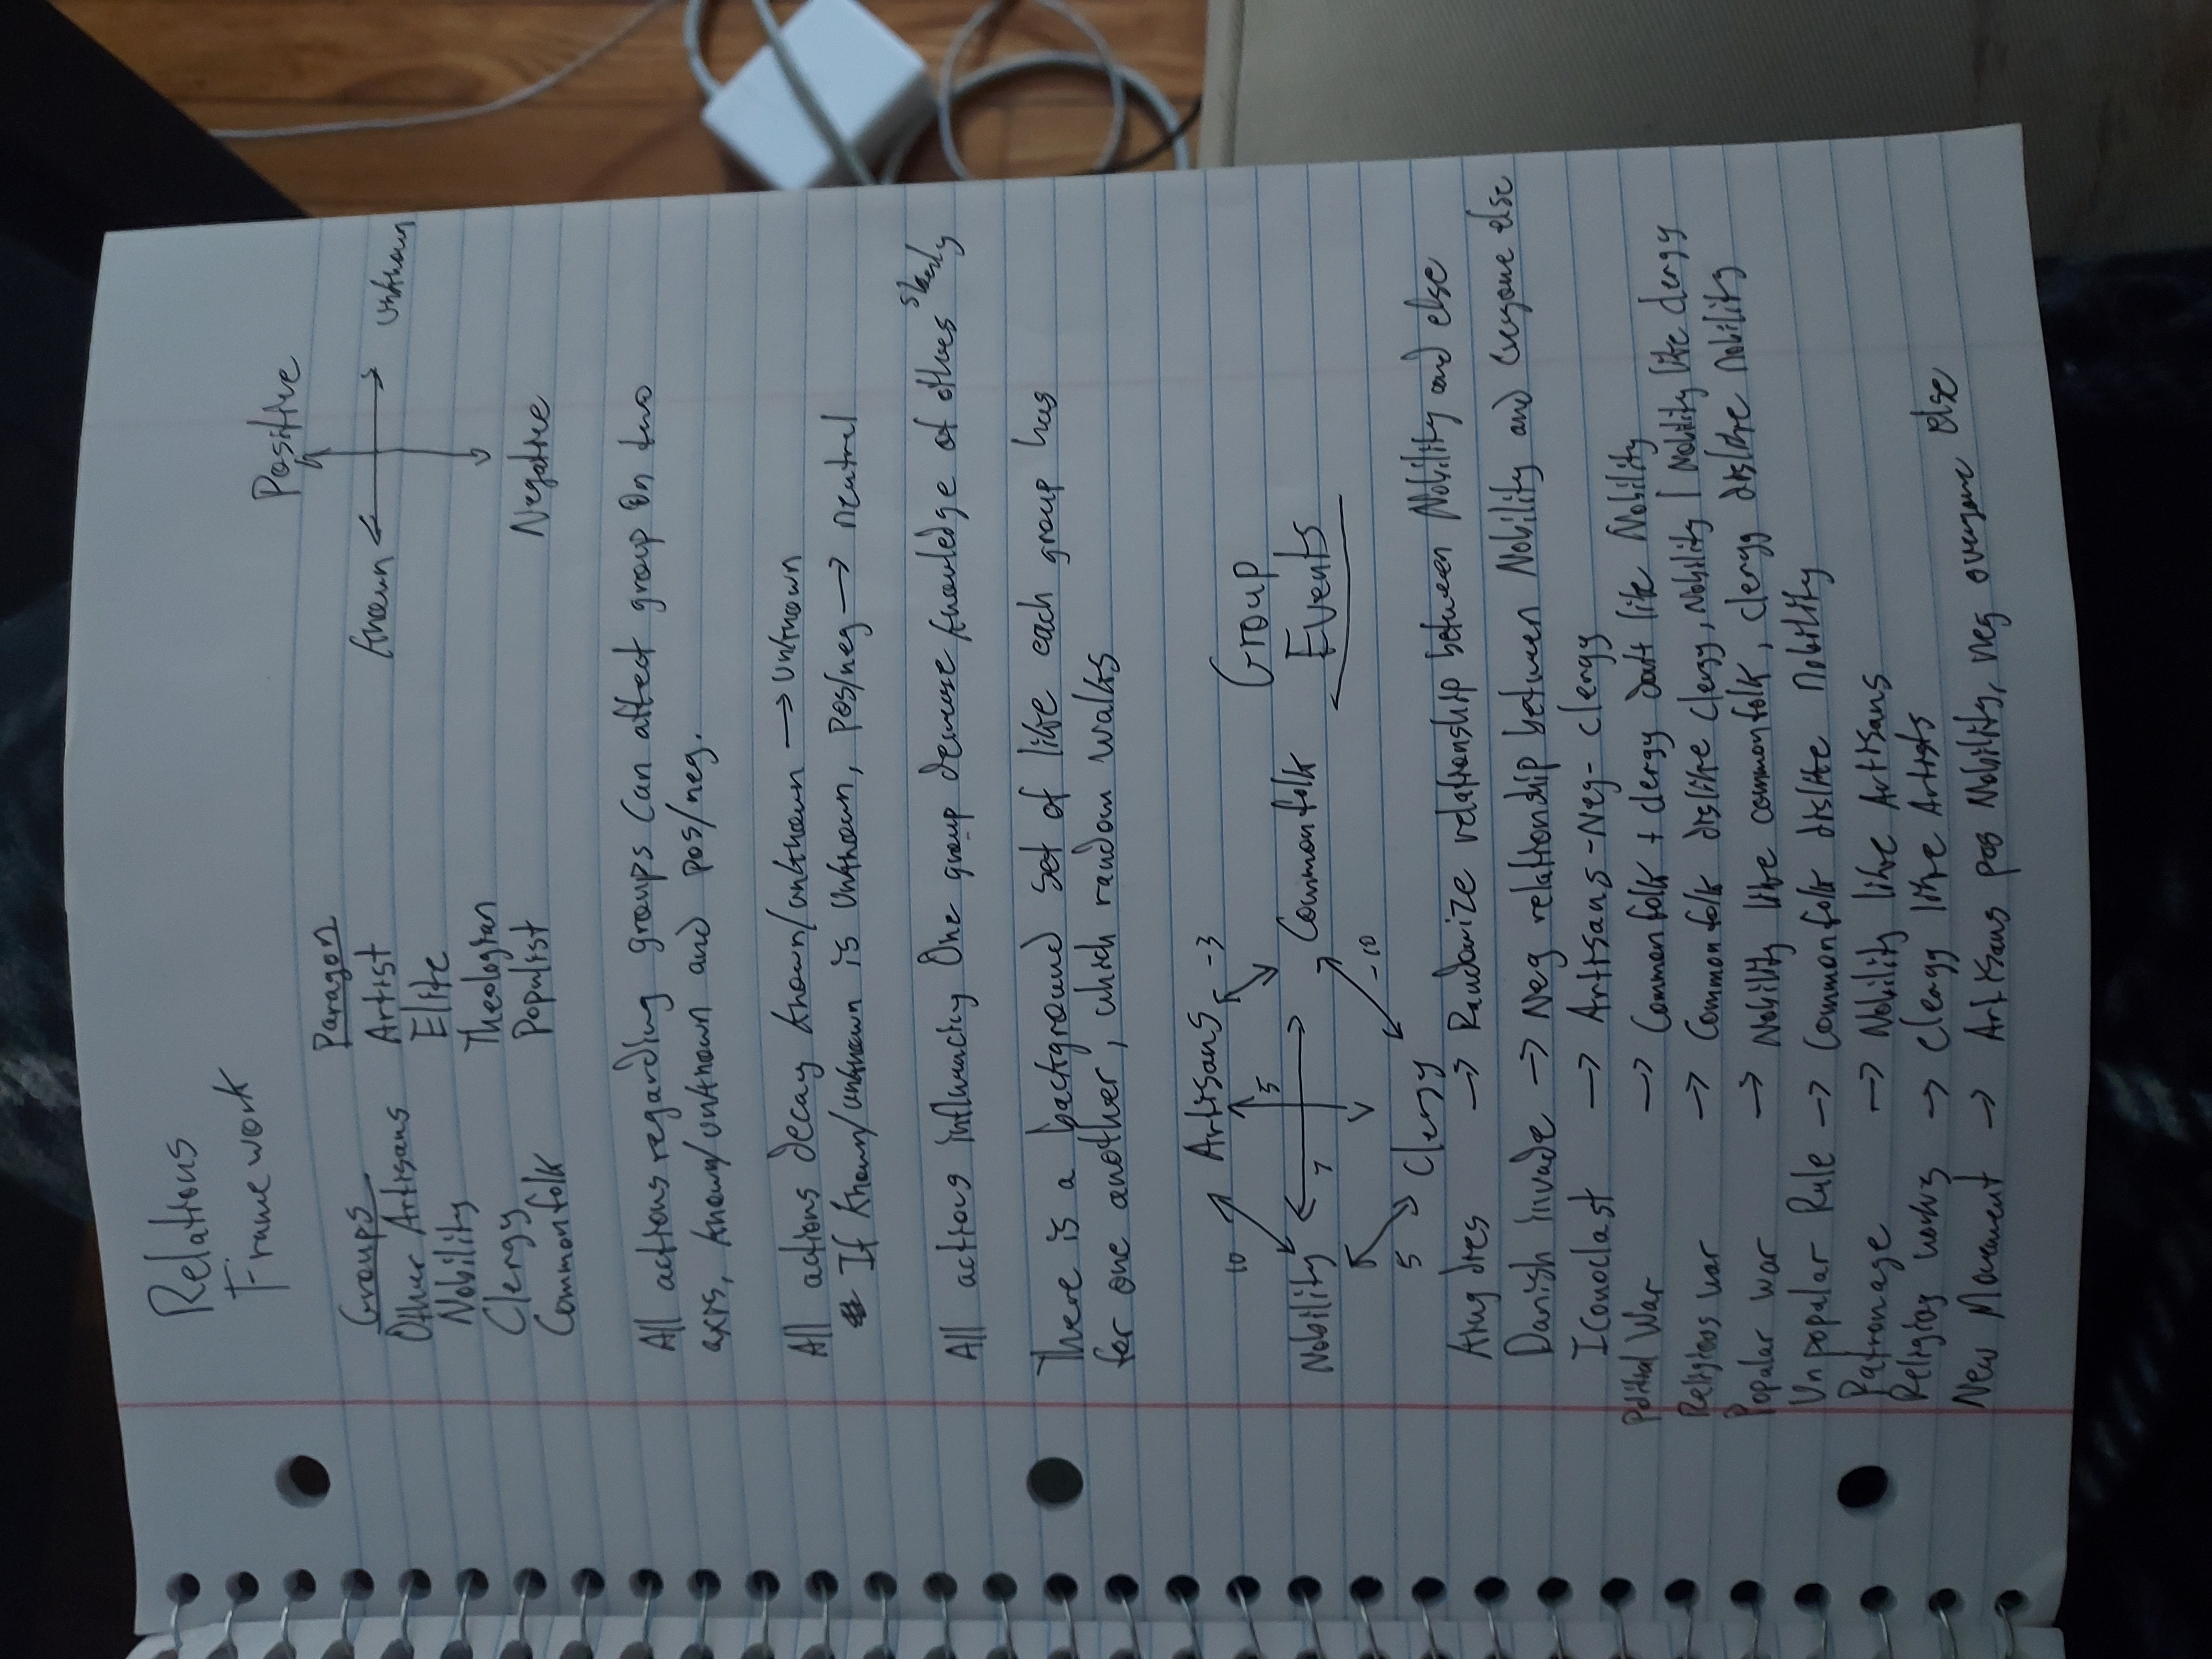 Relations
Framework
Groups
Other Artisans
Nobility
Clergy
Commonfolk
Paragon
Artist
Elite
Theologian
Populist
Positive
Known
Unknown
Negative
All actions regarding groups can affect group on two
axis, known/unknown and pos/neg.
All actions decay known/unknown → unknown
If known/unknown is unknown, pos/neg → neutral
All actions influencing One group decrease knowledge of others slowly
There is a background set of like each group has
for one another, which random walks
10 Artisans -3
5
Nobility 7 Commonfolk
5 Clergy -10
Group
Events
King dies → Randomize relationship between Nobility and else
Danish invade → Neg relationship between Nobility and everyone else
Iconoclast → Artisans -Neg- clergy
Political War → Commonfolk + clergy don't like Nobility
Religious war → Commonfolk dislike clergy, Nobility | Nobility like clergy
Popular war → Nobility like commonfolk, clergy dislike nobility
Unpopular Rule → Commonfolk dislike nobility
Patronage → Nobility like Artisans
Religios works → Clergy like Artists
New Movement → Artisans pos Nobility, neg everyone else